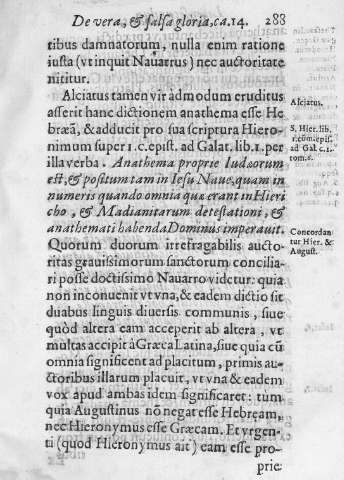 De vera, & falsa gloria, ca. 14. 288
tibus damnatorum, nulla enim ratione
iusta (vt inquit Nauarrus) nec auctoritate
nititur.
Alciatus tamen vir admodum eruditus
asserit hanc dictionem anathema esse He
bræā, & adducit pro sua scriptura Hiero-
nimum super 1. c. epist. ad Galat. lib. 1. per
illa verba. Anathema proprie Iudæorum
est, & positum tam in Iesu Naue, quam in
numeris quando omnia quæ erant in Hieri
cho, & Madianitarum detestationi, &
anathemati habenda Dominus imperauit.
Quorum duorum irrefragabilis aucto-
ritas grauissimorum sanctorum concilia-
ri posse doctissimo Nauarro videtur: quia
non inconuenit vt vna, & eadem dictio sit
duabus linguis diuersis communis, siue
quòd altera eam acceperit ab altera, vt
multas accipit à Græca Latina, siue quia cū
omnia significent ad placitum, primis au-
ctoribus illarum placuit, vt vna & eadem
vox apud ambas idem significaret: tum
quia Augustinus nō negat esse Hebream,
nec Hieronymus esse Græcam. Et vrgen-
ti (quod Hieronymus ait) eam esse pro-
prie
Alciatus.
S. Hier. lib.
ad Gal c. 1.
tom. 6.
Concordan
tur Hier. &
August.